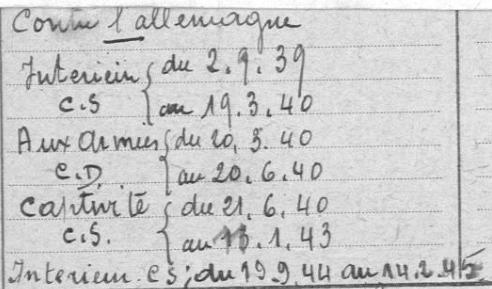 Contre l'allemagne
Interieur { du 2.9.39
C.S { au 19.3.40
Aux armées { du 20.3.40
C.D. { au 20.6.40
Captivité { du 21.6.40
C.S. { au 13.1.43
Interieur CS; du 19 9.44 au 14.2.45